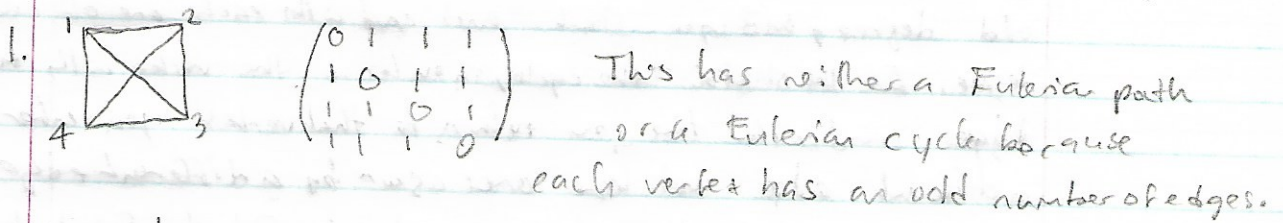 1.
1 2
4 3
0 1 1 1
1 0 1 1
1 1 0 1
1 1 1 0
This has neither a Eulerian path
or a Eulerian cycle because
each vertex has an odd number of edges.